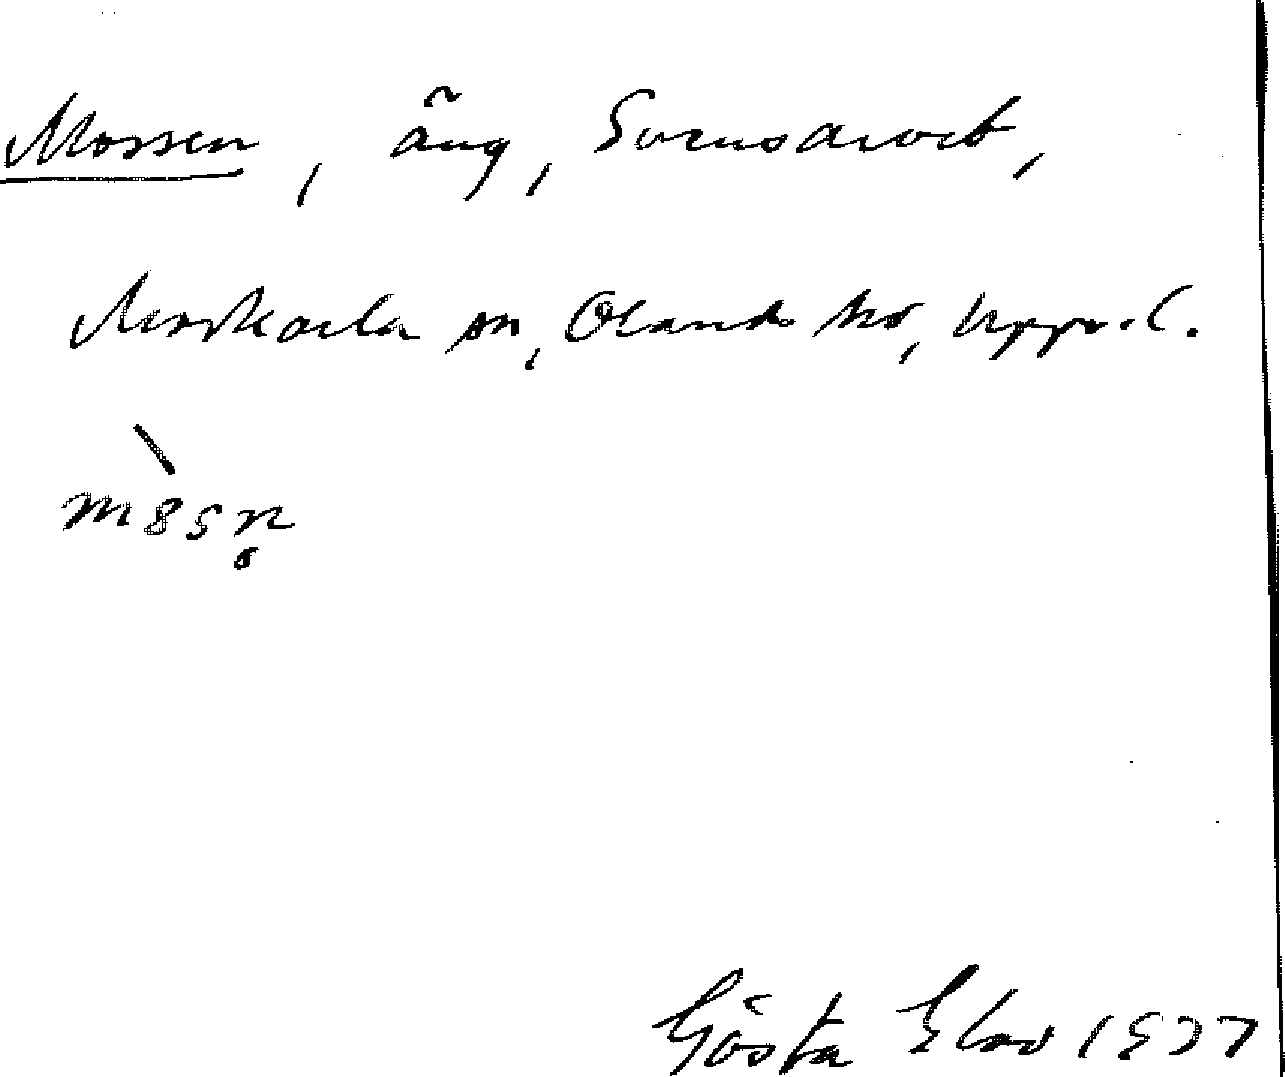 Mossen, äng, Svensarvet,
Morkarla sn, Olands hd, Uppl.
m8sn̥
Gösta Elov 1977